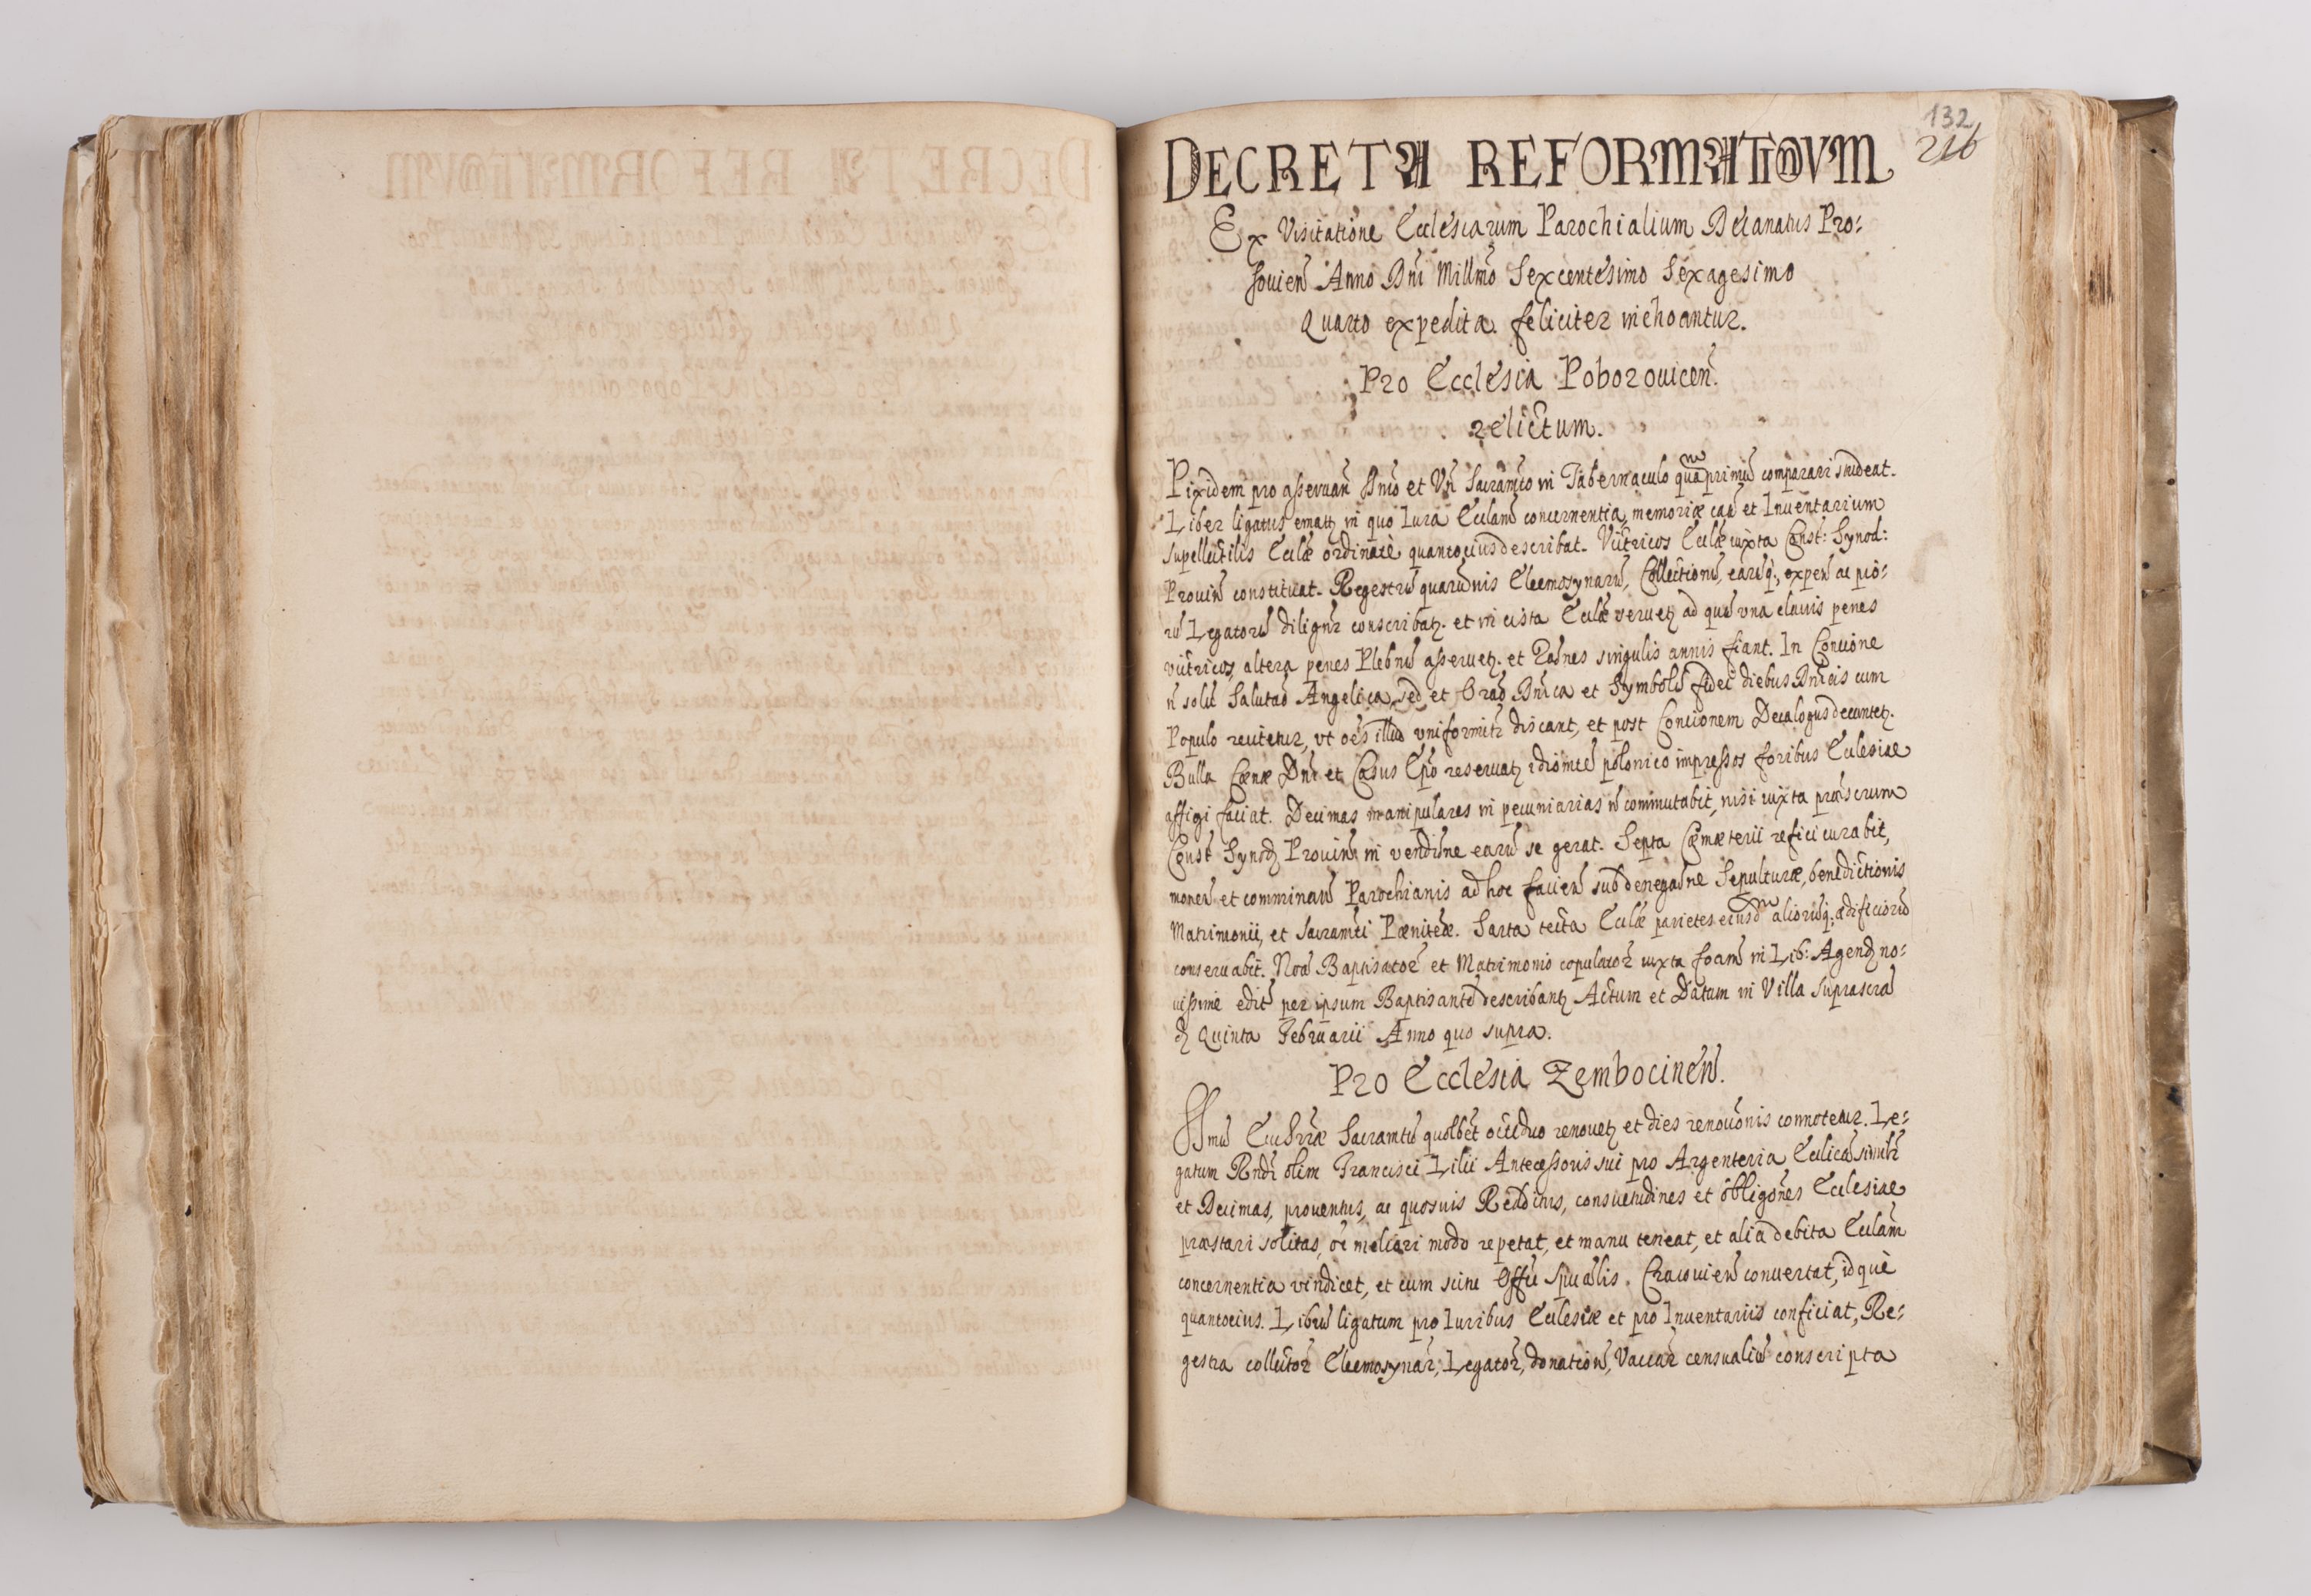 132
216
DECRETA REFORMATIONVM
Ex Visitatione Ecclesiarum Parochialium Decanatus Pro:
souien̄ Anno Dn̄i Millm̄o Sexcentesimo Sexagesimo
Quarto expedita feliciter inchoantur.
Pro Ecclesia Poborouicen̄.
relictum.
Pixidem pro asseruan̄ SSmo et Vn̄ Sacram̄to in Tabernaculo quamprimū comparari studeat.
Liber ligatus ematꝫ in quo Iura Ecclam̄ concernentia, memoriæ caū et Inuentarium
supellectilis Eccl̄æ ordinatè quantocius describat. Vitricos Eccl̄æ iuxta Const: Synod:
Prouin̄ constituat. Regestrū quarūnis Eleemosynarū, Collectionū, earūq́;, expen̄ ac pio:
rū Legatorū dilign̄r conscribatꝫ. et in cista Eccl̄æ seruetꝫ ad quā vna clauis penes
vitricos, altera penes Plebn̄ū asseruetꝫ. et Rāones singulis annis fiant. In Concione
n̄ solū Salutaō Angelica, sed et Oraō Dn̄ica et Symbolū fidei diebus Dn̄icis cum
Populo recitetur, vt oēs illud vniformitr̄ discant, et post Concionem Decalogus decantetꝫ.
Bulla Cœnæ Dn̄i et Casus Ep̄o reseruatꝫ idiomtē polonico impressos foribus Ecclesiae
affigi faciat. Decimas manipulares in pecuniarias n̄ commutabit, nisi iuxta præscrum̄
Const̄ Synodꝫ Prouin̄ in vendn̄e earū se gerat. Septa Cœmæterii refici curabit,
monen̄ et comminan̄ Parochianis ad hoc facien̄ sub denegaōne Sepulturæ, benedictionis
Matrimonii, et Sacramēti Pœnitēæ. Sarta tecta Eccl̄æ parietes eiusdm̄ aliorūq́; ædificiorū
conseruabit. Noā Baptisator̄ et Matrimonio copulator̄ iuxta foam̄ in Lib: Agendꝫ no:
uissime edit̄ per ipsum Baptisantē describantꝫ Actum et Datum in Villa suprascrā
dꝫ Quinta Februarii Anno quo supra.
Pro Ecclesia Zembocinen̄.
SSmū Euchr̄æ Sacramtū quolbēt octiduo renouetꝫ et dies renouōnis connotetur. Le:
gatum Rndī olim Francisci Lilii Antecessoris sui pro Argenteria Ecclicā similr̄
et Decimas, prouentus, ac quosuis Redditus, consuetudines et obligōnes Ecclesiae
præstari solitas, oī meliori modo repetat, et manu teneat, et alia debita Ecclam̄
concernentia vindicet, et cum scitu Offii Spuālis. Cracouien̄ conuertat, idque
quantocius. Librū ligatum pro Iuribus Ecclesiæ et pro Inuentariis conficiat, Re:
gestra collector̄ Eleemosynar̄, Legator̄, donation̄, Vaccar̄ censualiū conscripta